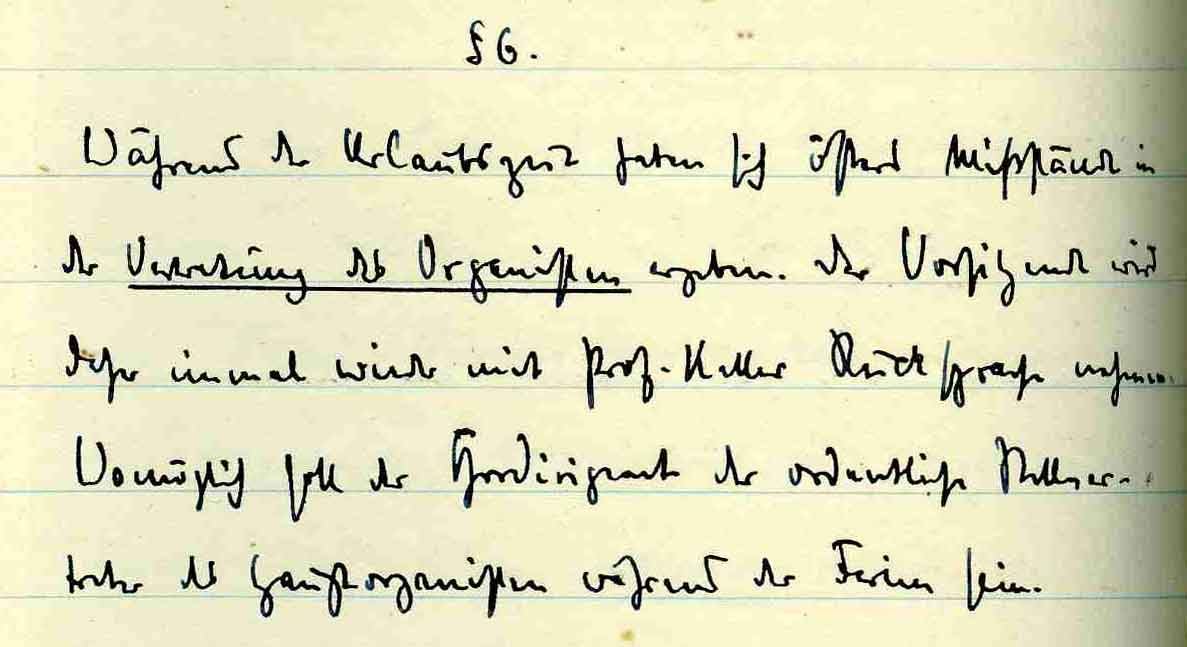 § 6.
Während der Urlaubszeit haben sich öfters Mißstände in
der Vertretung des Organisten ergeben. Der Vorsitzende wird
daher einmal wieder mit Prof. Keller Rücksprache nehmen.
Womöglich soll der Chordirigent der ordentliche Stellver-
treter des Hauptorganisten während der Ferien sein.